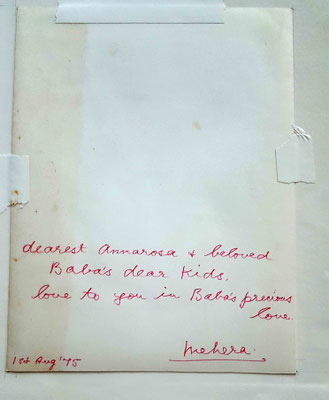 dearest Annarosa & beloved
Baba's dear Kids,
love to you in Baba's precious
love.
Mehera.
1st Aug '75